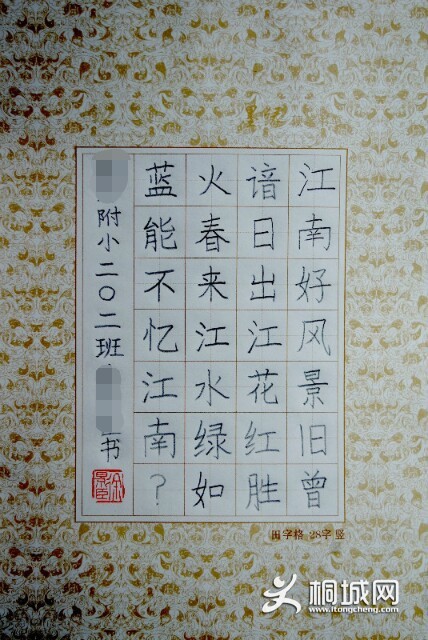 江南好风景旧曾
谙日出江花红胜
火春来江水绿如
蓝能不忆江南?
附小二〇二班
书
田字格 28字 竖
桐城网
www.itongcheng.com